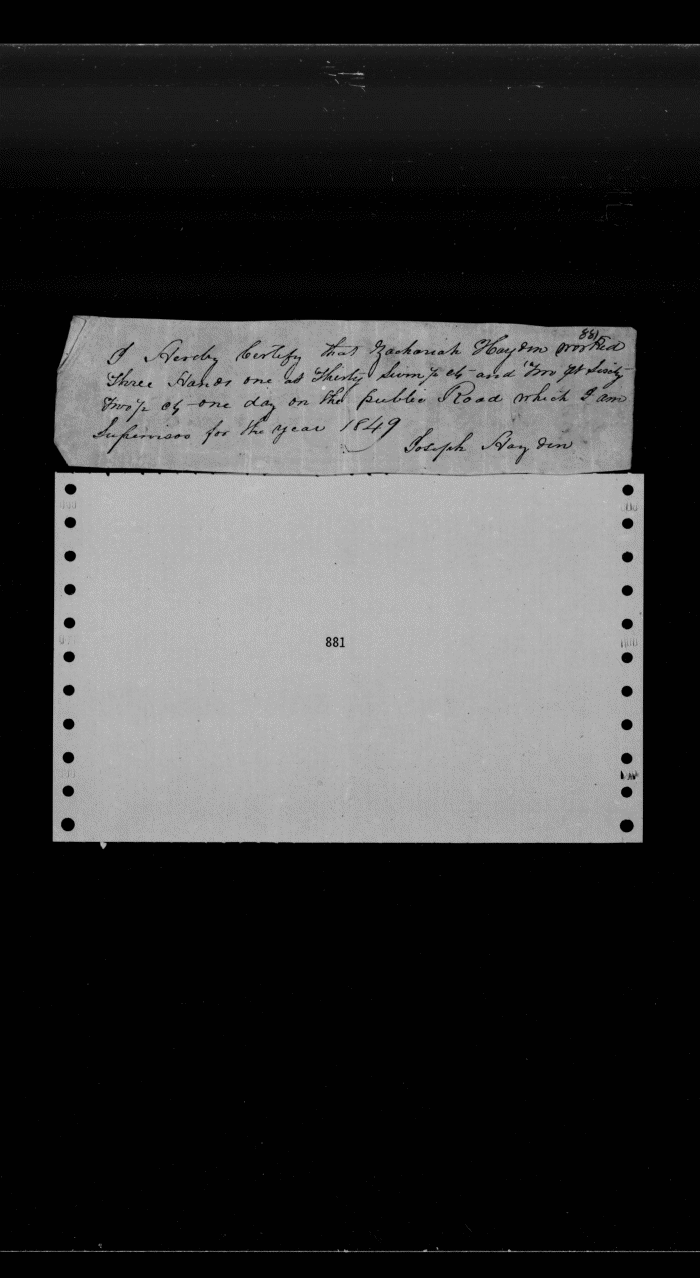 881
I Hereby Certify that Zachariah Hayden worked
Three Hands one at Thirty and Two at Sixty
Two ½ cts one day on the public Road which I am
Supervisor for the year 1849
Joseph Hayden
881